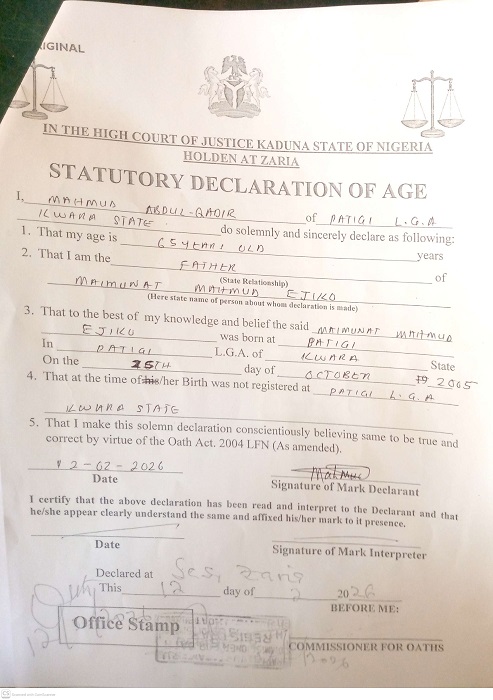 ORIGINAL
IN THE HIGH COURT OF JUSTICE KADUNA STATE OF NIGERIA
HOLDEN AT ZARIA
STATUTORY DECLARATION OF AGE
I, MAHMUD ABDUL-QADIR of PATIGI L.G.A
KWARA STATE do solemnly and sincerely declare as following:
1. That my age is 65 YEARS OLD years
2. That I am the FATHER of
(State Relationship)
MAIMUNAT MAHMUD EJIKO
(Here state name of person about whom declaration is made)
3. That to the best of my knowledge and belief the said MAIMUNAT MAHMUD
EJIKO was born at PATIGI
In PATIGI L.G.A. of KWARA State
On the 25TH day of OCTOBER 19 2005
4. That at the time of his/her Birth was not registered at PATIGI L.G.A
KWARA STATE
5. That I make this solemn declaration conscientiously believing same to be true and
correct by virtue of the Oath Act. 2004 LFN (As amended).
12-02-2026
Date
Signature of Mark Declarant
I certify that the above declaration has been read and interpret to the Declarant and that
he/she appear clearly understand the same and affixed his/her mark to it presence.
Date
Signature of Mark Interpreter
Declared at Zaria
This 12 day of 2 2026
BEFORE ME:
Office Stamp
COMMISSIONER FOR OATHS